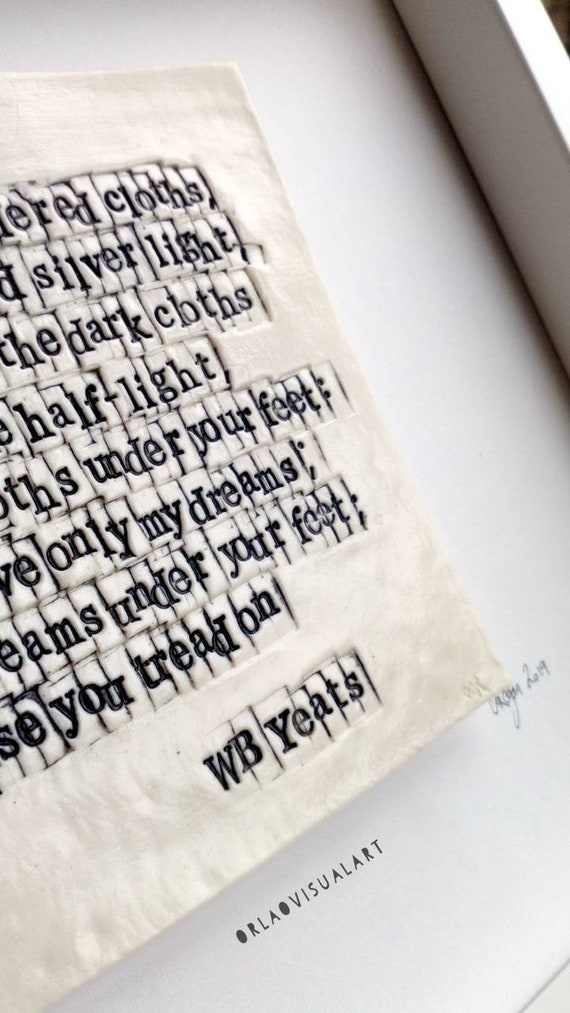 ered cloths,
d silver light,
the dark cloths
e half-light,
oths under your feet:
ve only my dreams;
eams under your feet;
se you tread on
WB Yeats
2019
ORLAOVISUALART